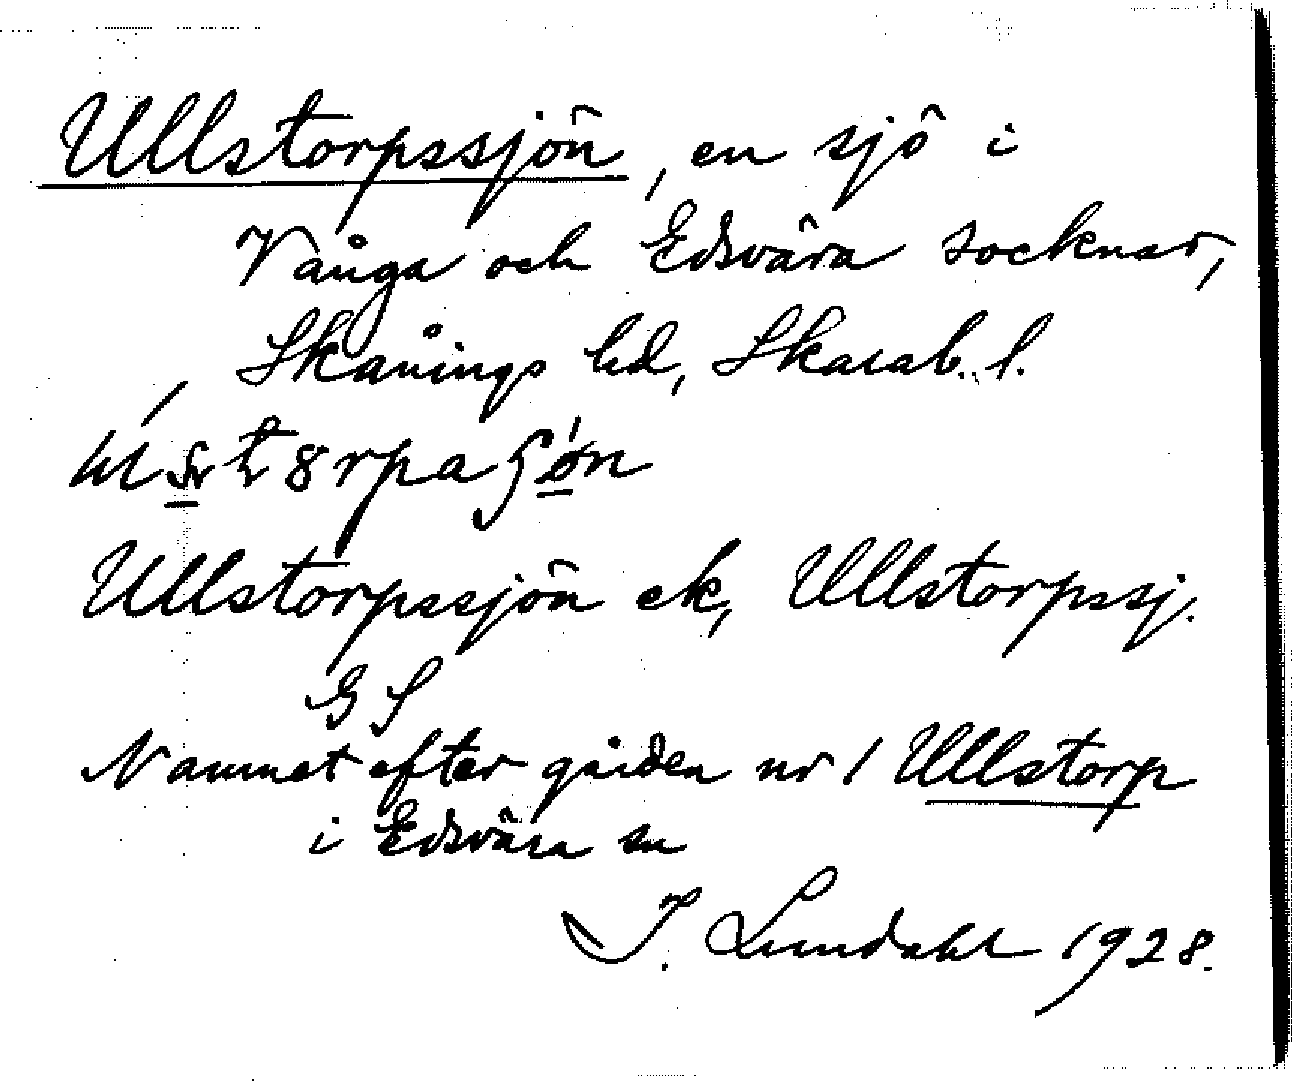 Ullstorpssjön, en sjö i
Vånga och Edsvära socknar,
Skånings hd, Skarab. l.
Ullstorpssjön ek, Ullstorpssj.
GS
Namnet efter gården nr 1 Ullstorp
i Edsvära sn
I. Lundahl 1928.